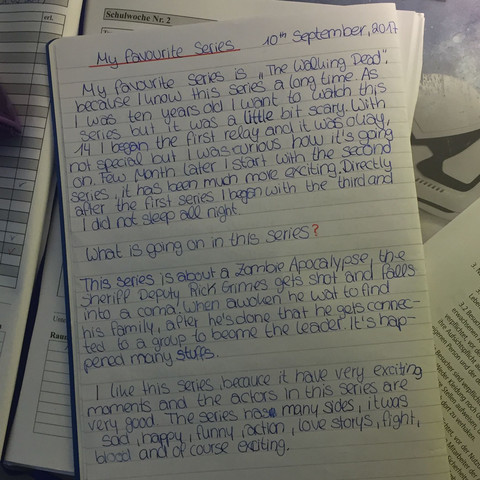 Schulwoche Nr. 2
My favourite Series 10th September, 2017
My favourite series is „The Walking Dead“,
because I know this series a long time. As
I was ten years old I want to watch this
series but it was a little bit scary. With
14 I began the first relay and it was okay,
not special but I was curious how it's going
on. Few Month later I start with the second
series, it has been much more exciting. Directly
after the first series I began with the third and
I did not sleep all night.
What is going on in this series?
This series is about a Zombie Apocalypse, the
Sheriff Deputy Rick Grimes gets shot and falls
into a coma. When awoken he wat to find
his family, after he's done that he gets connec-
ted to a group to beome the leader. It's hap-
pened many stuffs.
I like this series because it have very exciting
moments and the actors in this series are
very good. The series hase many sides, it was
sad, happy, funny, action, love storys, fight,
blood and of course exciting.